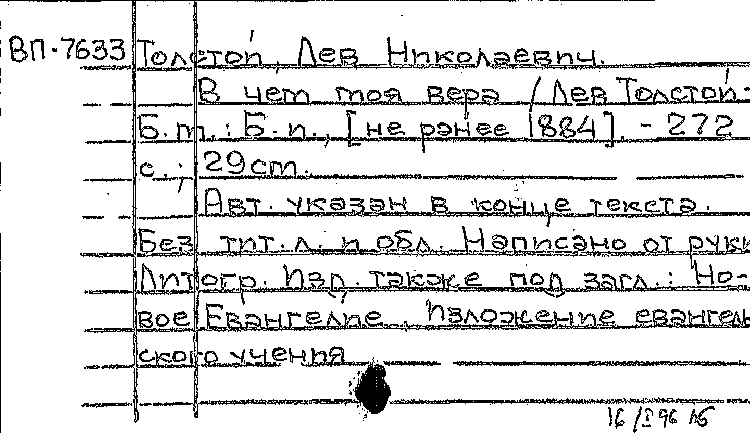 ВП-7633 Толстой, Лев Николаевич.
В чем моя вера / Лев Толстой.-
Б.м.: Б.и., [не ранее 1884]. - 272
с.; 29см.
Авт. указан в конце текста.
Без тит. л. и обл. Написано от руки
Литогр. Изд. также под загл.: Но-
вое Евангелие, изложение евангель
ского учения
16/I 96